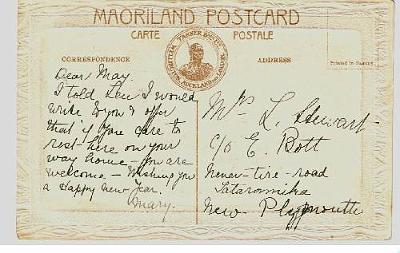 MAORILAND POSTCARD
CARTE POSTALE
CORRESPONDENCE
ADDRESS
Dear May.
I told Lew I would
write to you & offer
that if you care to
rest here on your
way home – you are
welcome – Wishing you
a Happy New Year.
Mary.
Mrs L. Stewart.
c/o E. Bott
Never-tire-road
New Plymouth